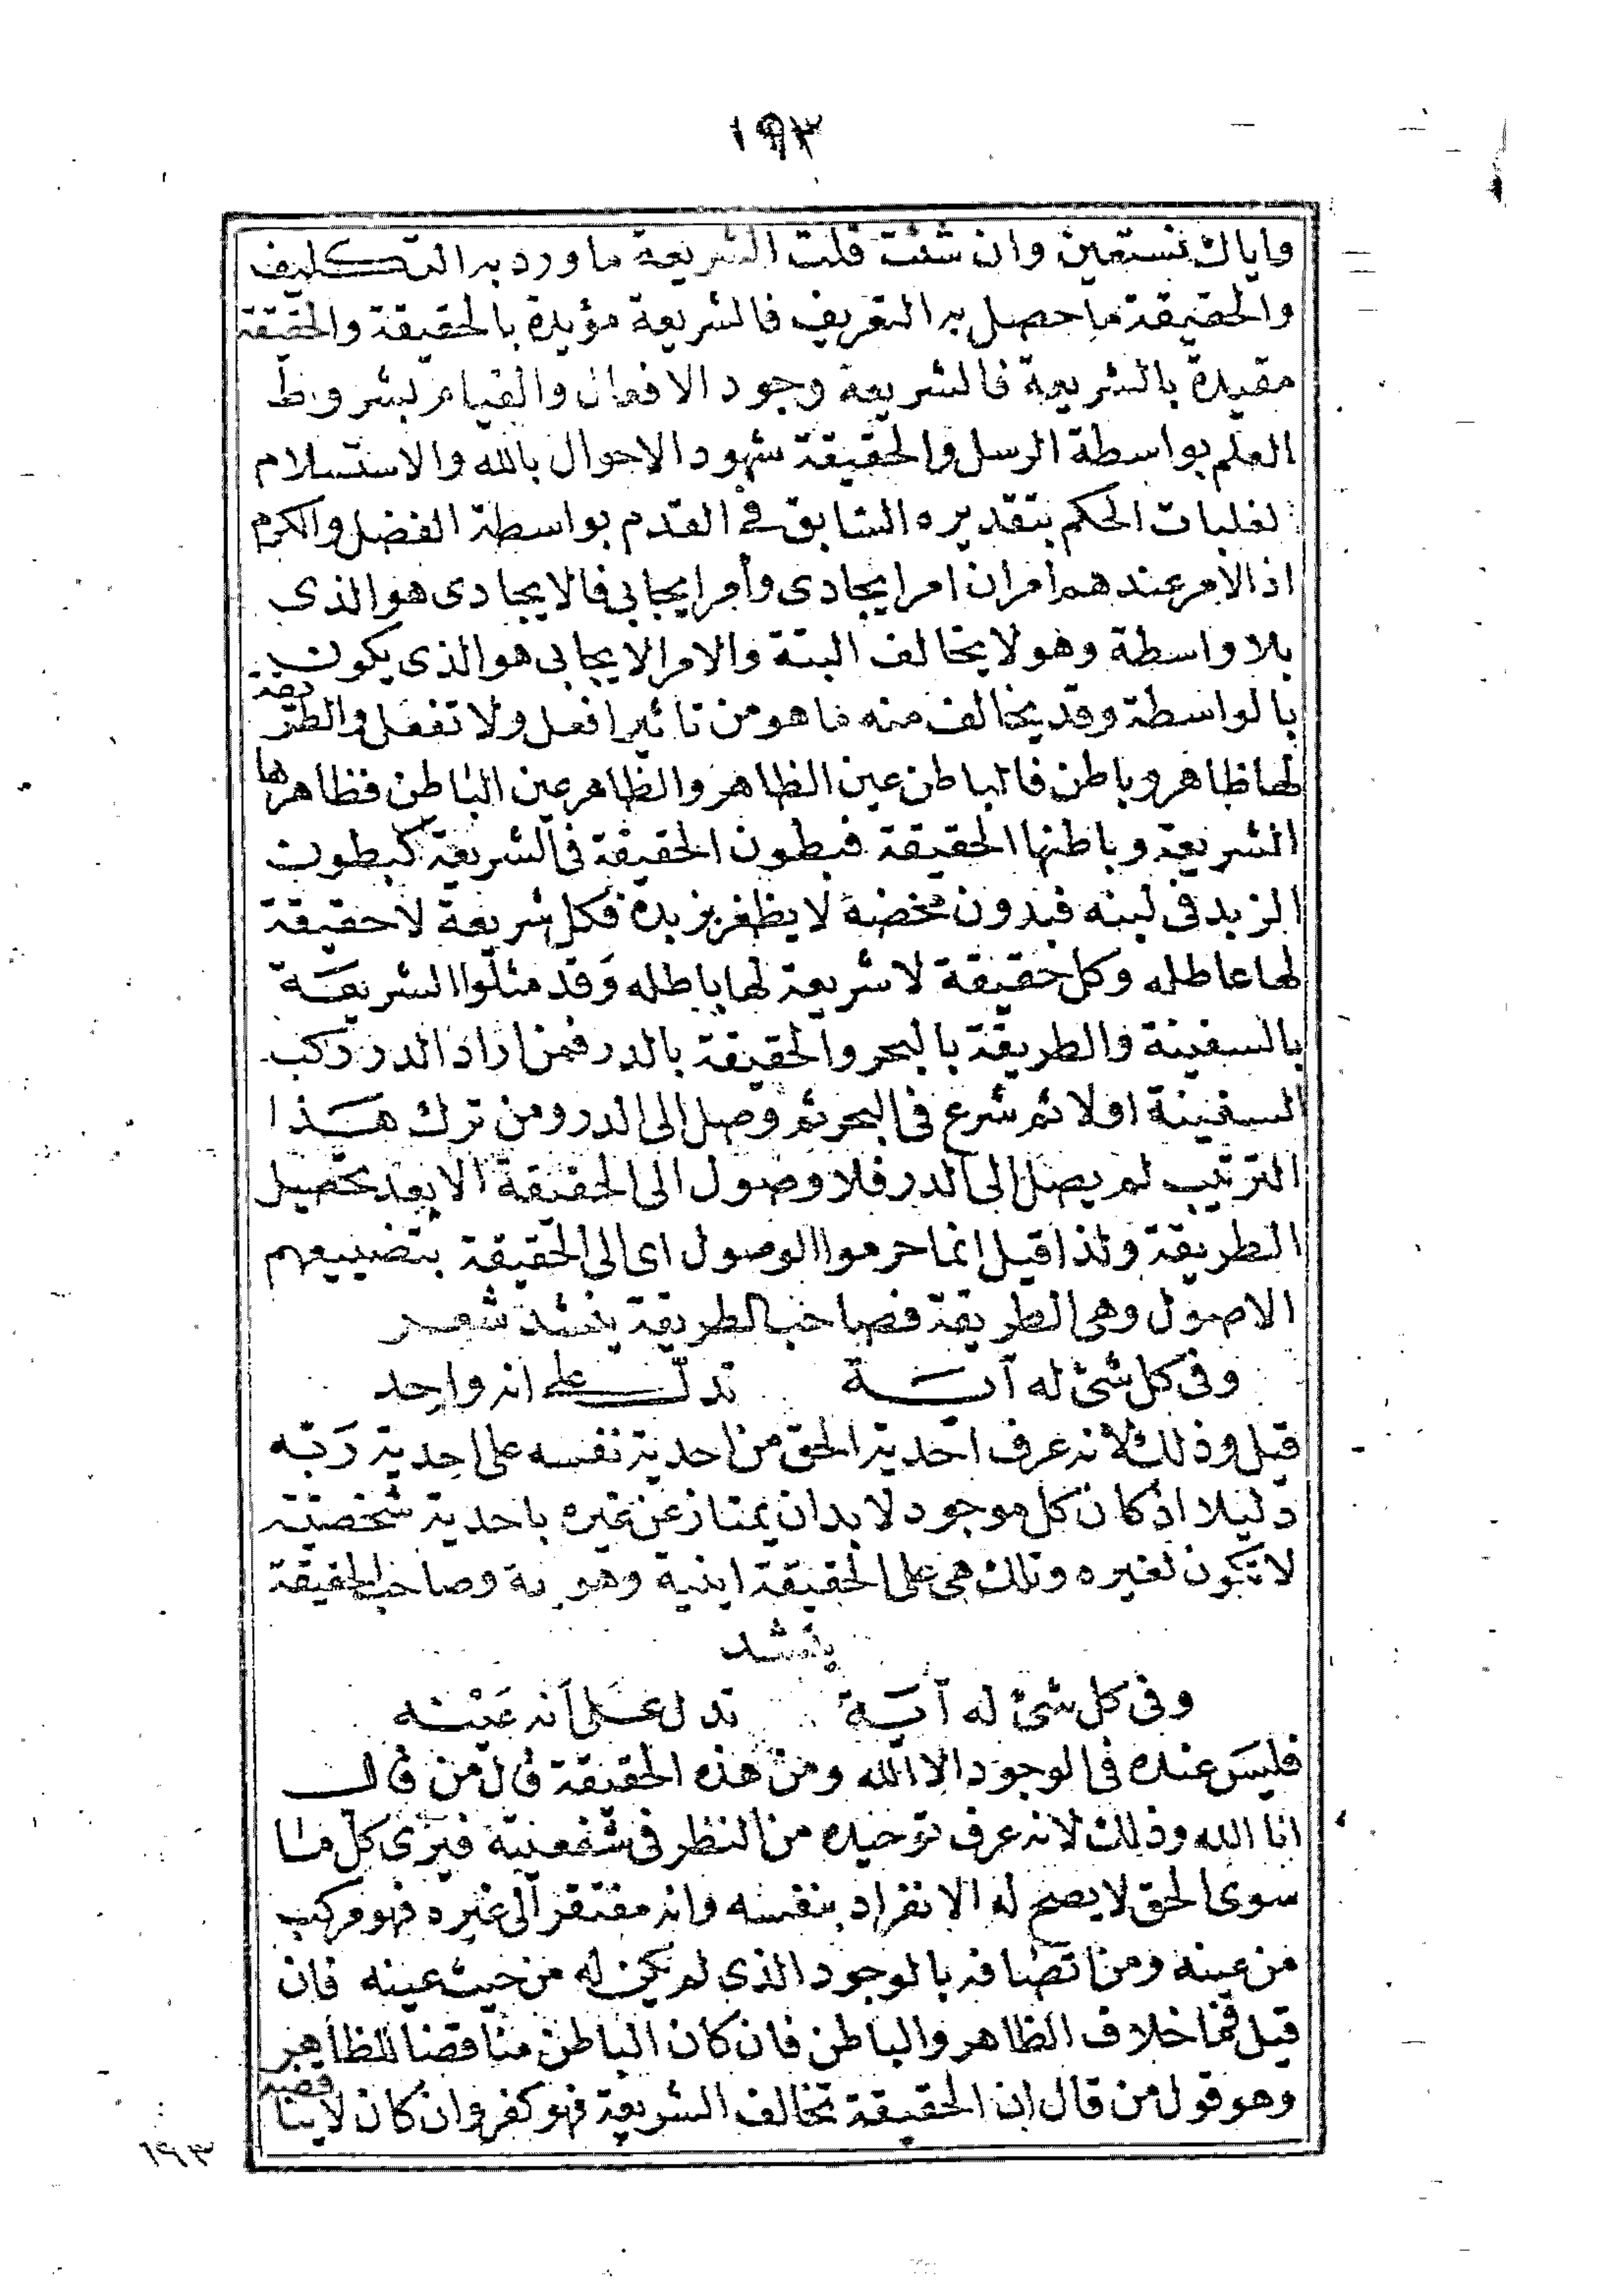 ١٩٣
واياك نستعين وان شئت قلت الشريعة ما ورد به التكليف
والحقيقة ما حصل به التعريف فالشريعة مؤيدة بالحقيقة والحقيقة
مقيدة بالشريعة فالشريعة وجود الافعال والقيام بشروط
العلم بواسطة الرسل والحقيقة شهود الاحوال بالله والاستسلام
لغلبات الحكم بتقديره السابق في القدم بواسطة الفضل والكرم
اذ الامر عندهم امران امر ايجادى وأمر ايجابي فالايجادى هو الذى
بلا واسطة وهو لا يخالف البتة والامر الايجابى هو الذى يكون
بالواسطة وقد يخالف منه ما هو من تأثير افعل ولا تفعل والطريقة
لها ظاهر وباطن فالباطن عين الظاهر والظاهر عين الباطن فظاهرها
الشريعة وباطنها الحقيقة فبطون الحقيقة فى الشريعة كبطون
الزبد فى لبنه فبدون مخضه لا يظفر بزبده فكل شريعة لا حقيقة
لها عاطله وكل حقيقة لا شريعة لها باطله وقد مثلوا الشريعة
بالسفينة والطريقة بالبحر والحقيقة بالدر فمن اراد الدر ركب
السفينة اولا ثم شرع فى البحر ثم وصل الى الدر ومن ترك هذا
الترتيب لم يصل الى الدر فلا وصول الى الحقيقة الا بعد تحصيل
الطريقة ولذا قيل انما حرموا الوصول اى الى الحقيقة بتضييعهم
الاصول وهى الطريقة فصاحب الطريقة ينشد شعر
وفى كل شئ له آية تدل على انه واحد
قيل وذلك لانه عرف احدية الحق من احدية نفسه على احدية ربه
دليلا اذ كان كل موجود لا بد ان يمتاز عن غيره باحدية شخصيته
لا تكون لغيره وتلك هى على الحقيقة اينية وهوية وصاحب الحقيقة
ينشد
وفى كل شئ له آية تدل على أنه عينه
فليس عنده فى الوجود الا الله ومن هذه الحقيقة قال من قال
انا الله وذلك لانه عرف توحيده من النظر فى شفعيته فيرى كل ما
سوى الحق لا يصح له الانفراد بنفسه وانه مفتقر الى غيره فهو مركب
من عينه ومن اتصافه بالوجود الذى لم يكن له من حيث عينه فان
قيل فما خلاف الظاهر والباطن فان كان الباطن مناقضا للظاهر
وهو قول من قال ان الحقيقة تخالف الشريعة فهو كفر وان كان لا يناقضه
١٩٣